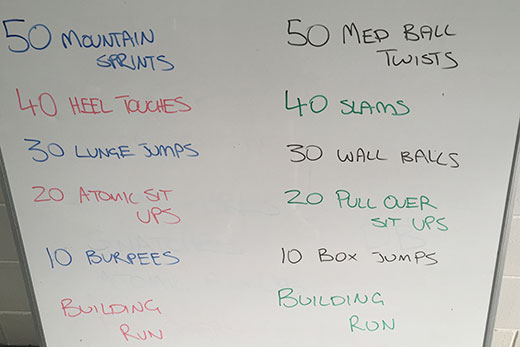 50 MOUNTAIN
SPRINTS
40 HEEL TOUCHES
30 LUNGE JUMPS
20 ATOMIC SIT
UPS
10 BURPEES
BUILDING
RUN
50 MED BALL
TWISTS
40 SLAMS
30 WALL BALLS
20 PULL OVER
SIT UPS
10 BOX JUMPS
BUILDING
RUN